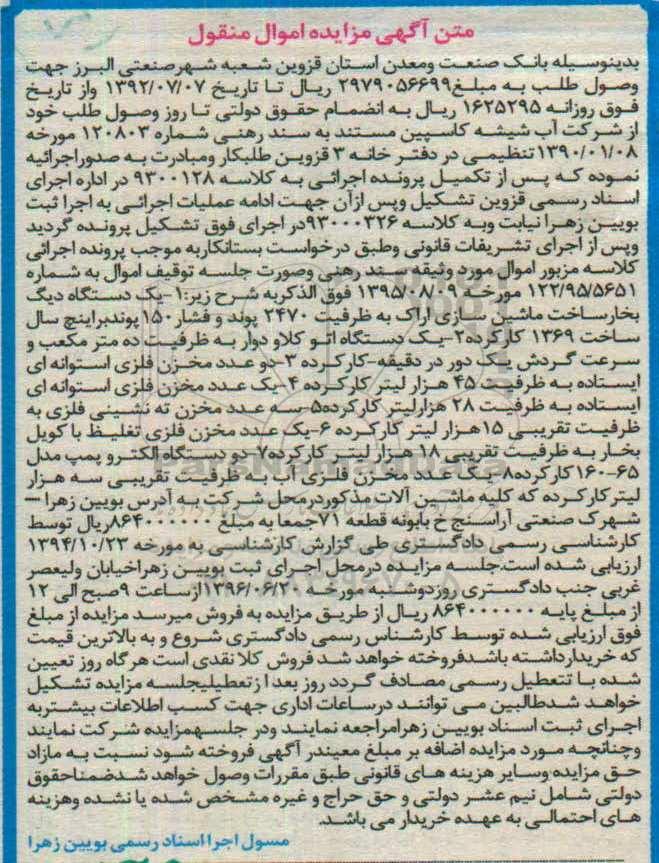 متن آگهی مزایده اموال منقول
بدینوسیله بانک صنعت ومعدن استان قزوین شعبه شهرصنعتی البرز جهت
وصول طلب به مبلغ۲۹۷۹۰۵۶۶۹۹ ریال تا تاریخ ۱۳۹۲/۰۷/۰۷ واز تاریخ
فوق روزانه ۱۶۲۵۲۹۵ ریال به انضمام حقوق دولتی تا روز وصول طلب خود
از شرکت آب شیشه کاسپین مستند به سند رهنی شماره ۱۲۰۸۰۳ مورخه
۱۳۹۰/۰۱/۰۸تنظیمی در دفتر خانه ۳ قزوین طلبکار ومبادرت به صدوراجرائیه
نموده که پس از تکمیل پرونده اجرائی به کلاسه ۹۳۰۰۱۲۸ در اداره اجرای
اسناد رسمی قزوین تشکیل وپس ازآن جهت ادامه عملیات اجرائی به اجرا ثبت
بویین زهرا نیابت وبه کلاسه ۹۳۰۰۰۳۲۶در اجرای فوق تشکیل پرونده گردید
وپس از اجرای تشریفات قانونی وطبق درخواست بستانکاربه موجب پرونده اجرائی
کلاسه مزبور اموال مورد وثیقه سند رهنی وصورت جلسه توقیف اموال به شماره
۱۲۲/۹۵/۵۶۵۱ مورخه ۱۳۹۵/۰۸/۰۹ فوق الذکربه شرح زیر:۱-یک دستگاه دیگ
بخارساخت ماشین سازی اراک به ظرفیت ۲۴۷۰ پوند و فشار۱۵۰پوندبراینچ سال
ساخت ۱۳۶۹ کارکرده۲-یک دستگاه اتو کلاو دوار به ظرفیت ده متر مکعب و
سرعت گردش یک دور در دقیقه-کارکرده ۳-دو عدد مخزن فلزی استوانه ای
ایستاده به ظرفیت ۴۵ هزار لیتر کارکرده ۴-یک عدد مخزن فلزی استوانه ای
ایستاده به ظرفیت ۲۸ هزارلیتر کارکرده۵-سه عدد مخزن ته نشینی فلزی به
ظرفیت تقریبی ۱۵هزار لیتر کارکرده ۶-یک عدد مخزن فلزی تغلیظ با کویل
بخار به ظرفیت تقریبی ۱۸ هزار لیتر کارکرده۷-دو دستگاه الکترو پمپ مدل
۶۵-۱۶۰ کارکرده۸-یک عدد مخزن فلزی آب به ظرفیت تقریبی سه هزار
لیترکارکرده که کلیه ماشین آلات مذکوردرمحل شرکت به آدرس بویین زهرا –
شهرک صنعتی آراسنج خ بابونه قطعه ۷۱جمعا به مبلغ ۸۶۴۰۰۰۰۰۰۰ریال توسط
کارشناسی رسمی دادگستری طی گزارش کارشناسی به مورخه ۱۳۹۴/۱۰/۲۳
ارزیابی شده است.جلسه مزایده درمحل اجرای ثبت بویین زهراخیابان ولیعصر
غربی جنب دادگستری روزدوشنبه مورخه ۱۳۹۶/۰۶/۲۰ازساعت ۹صبح الی ۱۲
از مبلغ پایه ۸۶۴۰۰۰۰۰۰۰ ریال از طریق مزایده به فروش میرسد مزایده از مبلغ
فوق ارزیابی شده توسط کارشناس رسمی دادگستری شروع و به بالاترین قیمت
که خریدارداشته باشدفروخته خواهد شد فروش کلا نقدی است هرگاه روز تعیین
شده با تتعطیل رسمی مصادف گردد روز بعد ا زتعطیلیجلسه مزایده تشکیل
خواهد شدطالبین می توانند درساعات اداری جهت کسب اطلاعات بیشتربه
اجرای ثبت اسناد بویین زهرامراجعه نمایند ودر جلسهمزایده شرکت نمایند
وچنانچه مورد مزایده اضافه بر مبلغ معیندر آگهی فروخته شود نسبت به مازاد
حق مزایده وسایر هزینه های قانونی طبق مقررات وصول خواهد شدضمناحقوق
دولتی شامل نیم عشر دولتی و حق حراج و غیره مشخص شده یا نشده وهزینه
های احتمالی به عهده خریدار می باشد.
مسول اجرا اسناد رسمی بویین زهرا
ParsNamadData